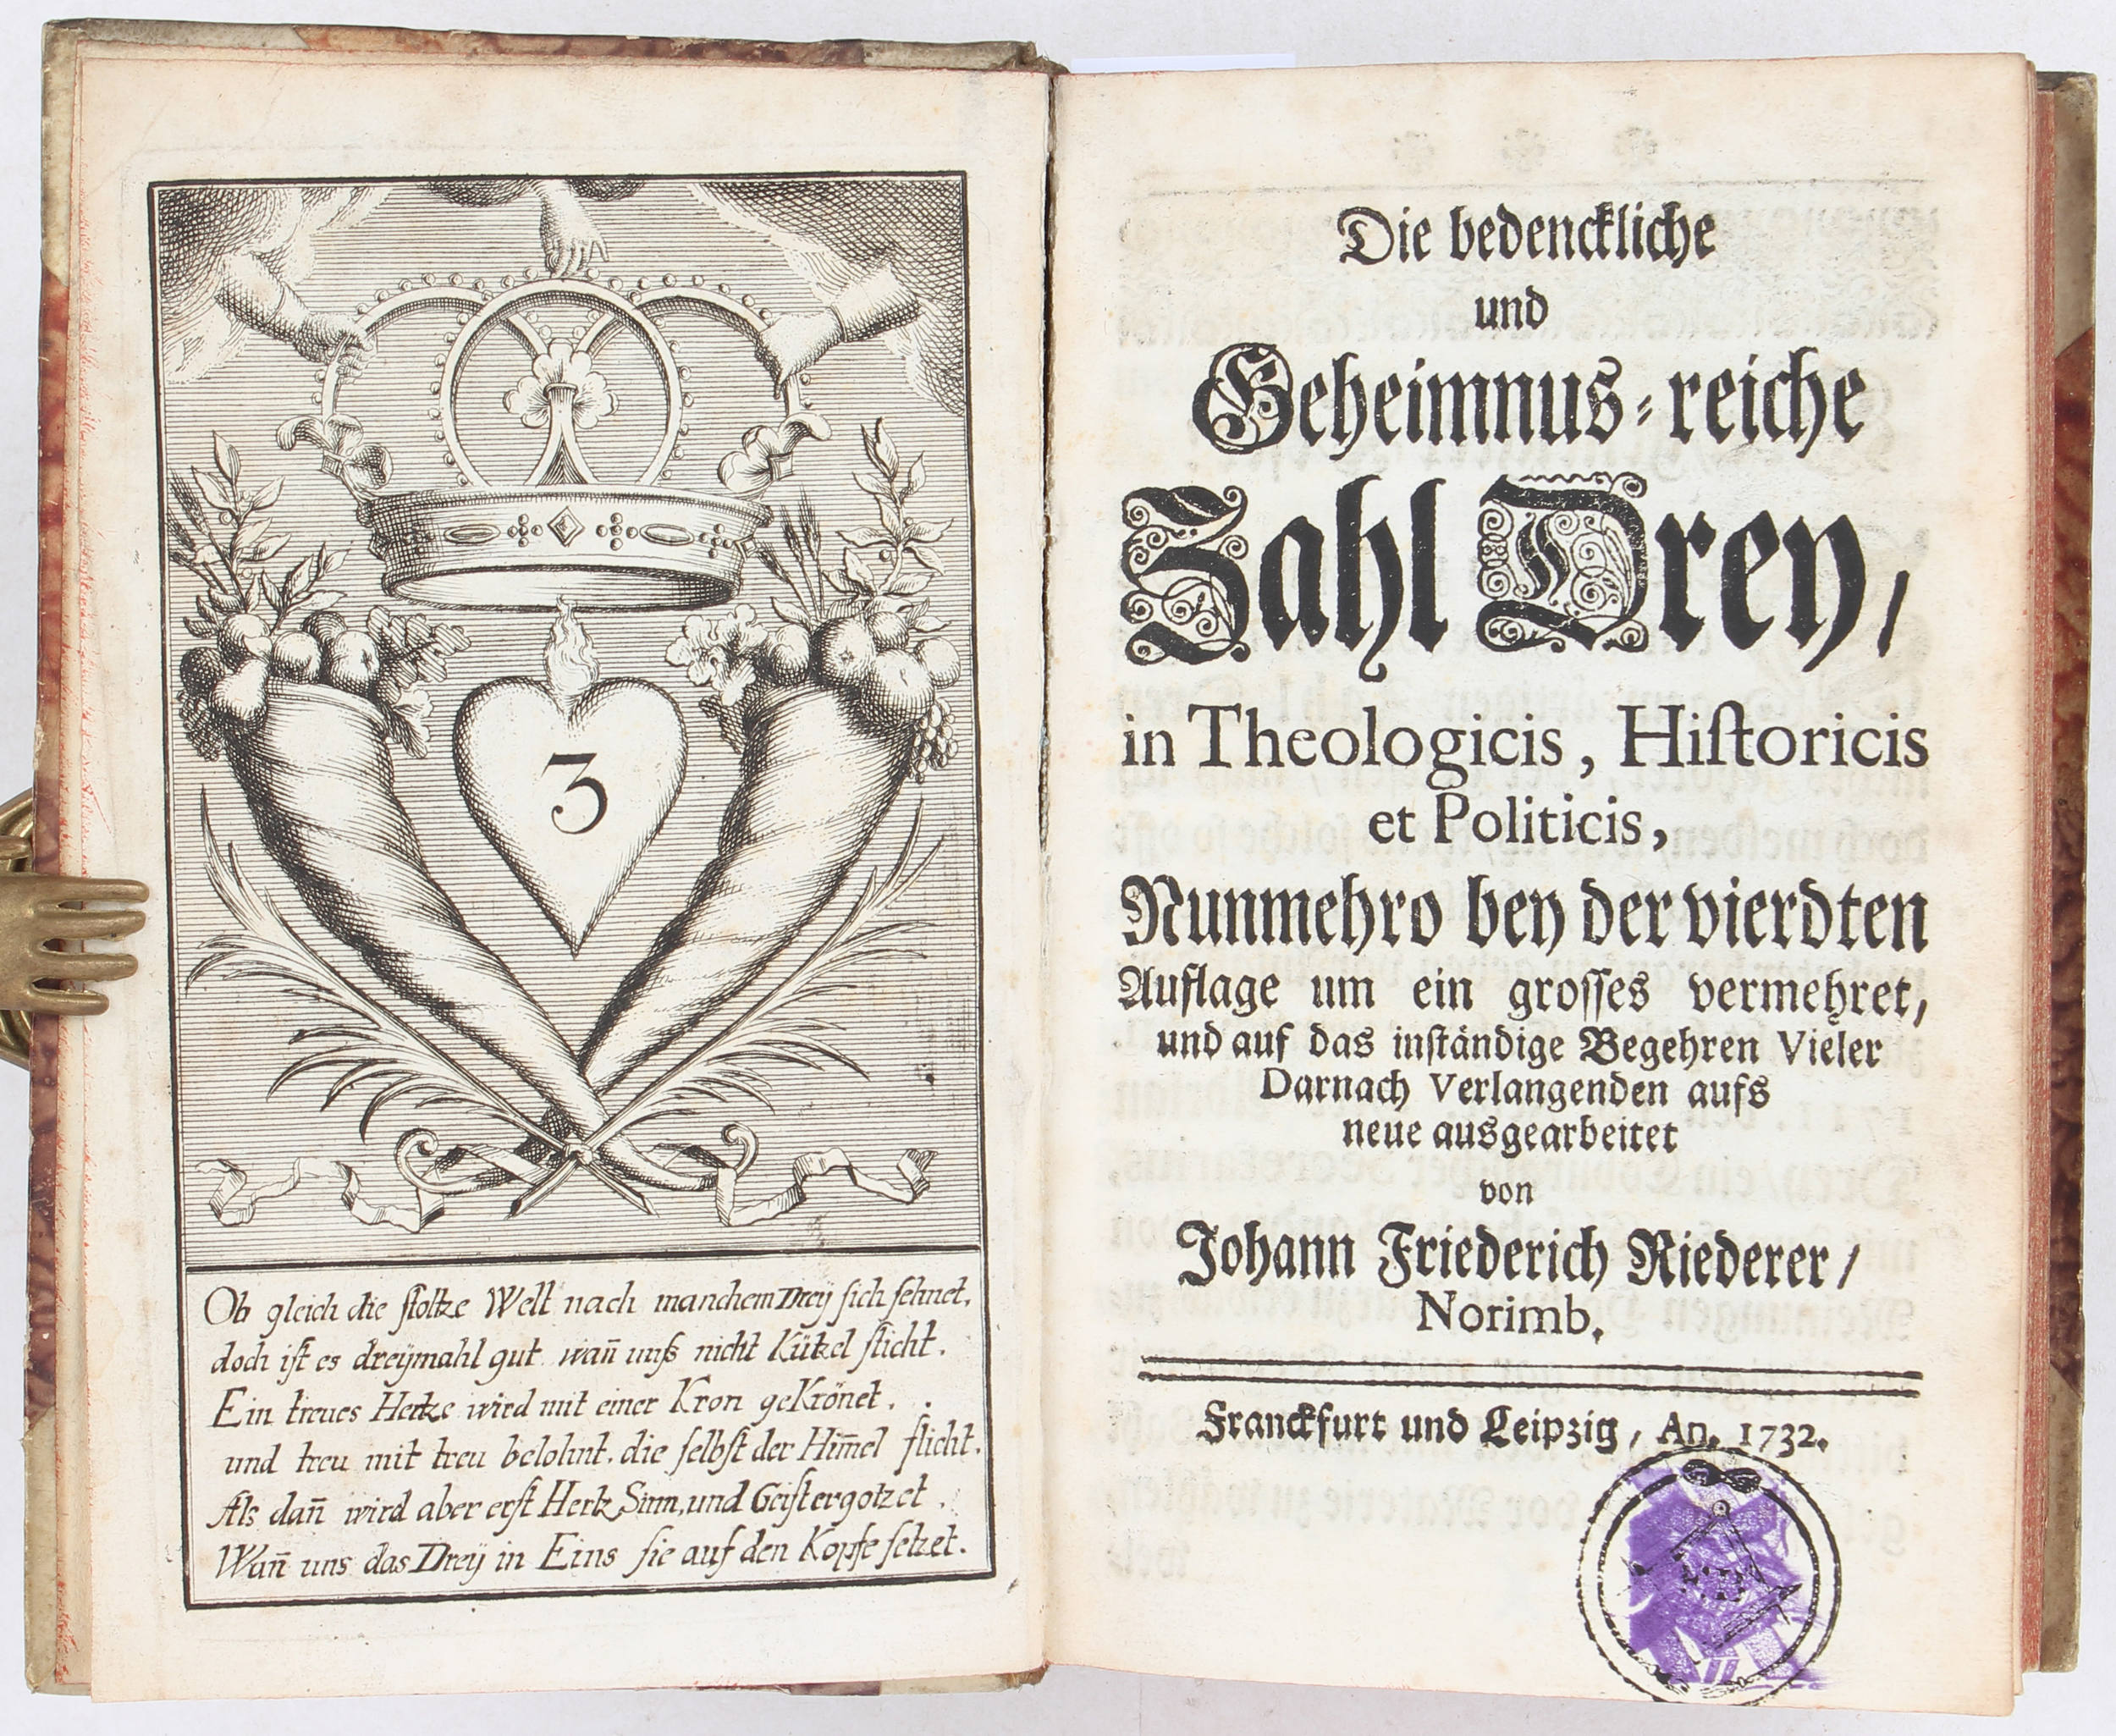 3
Ob gleich die ſtoltze Welt nach manchem Dreÿ ſich ſehnet,
doch iſt es dreÿmahl gut wañ unſs nicht Kützel ſticht.
Ein treues Hertze wird mit einer Kron geKrönet.
und treu mit treu belohnt, die ſelbſt der Him̄el flicht.
Als dañ wird aber erſt Hertz, Sinn, und Geiſt ergötzet.
Wañ uns das Dreÿ in Eins ſie auf den Kopfe ſetzet.
Die bedenckliche
und
Geheimnus⸗reiche
Zahl Drey /
in Theologicis, Hiſtoricis
et Politicis,
Nunmehro bey der vierdten
Auflage um ein groſſes vermehret,
und auf das inſtändige Begehren Vieler
Darnach Verlangenden aufs
neue ausgearbeitet
von
Johann Friederich Riederer /
Norimb.
Franckfurt und Leipzig / An. 1732.